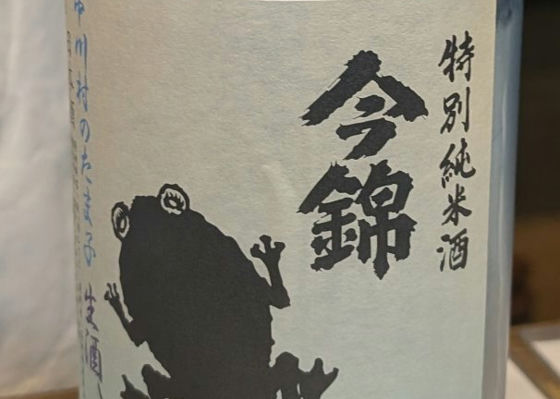 特別純米酒
今錦
中川村のたま子 生酒